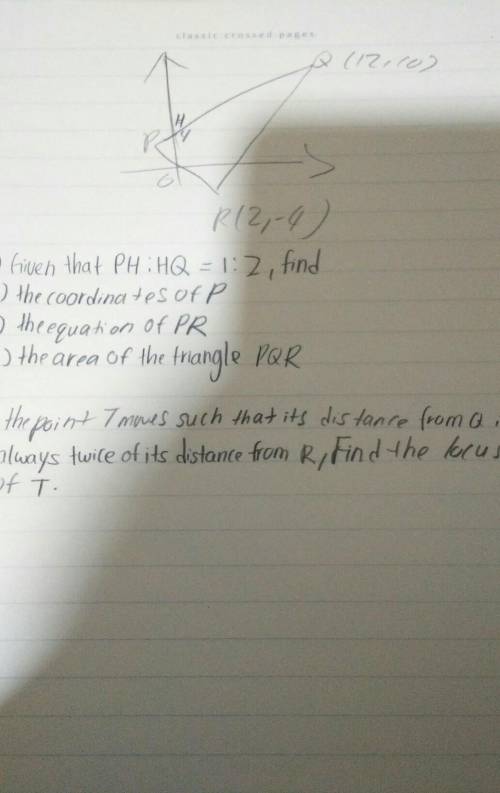 classic crossed pages
Q (12,10)
H
P 4
O
R(2,-4)
) Given that PH:HQ = 1:2, find
) the coordinates of P
) the equation of PR
) the area of the triangle PQR
the point T moves such that its distance from Q
always twice of its distance from R, Find the locus
of T.